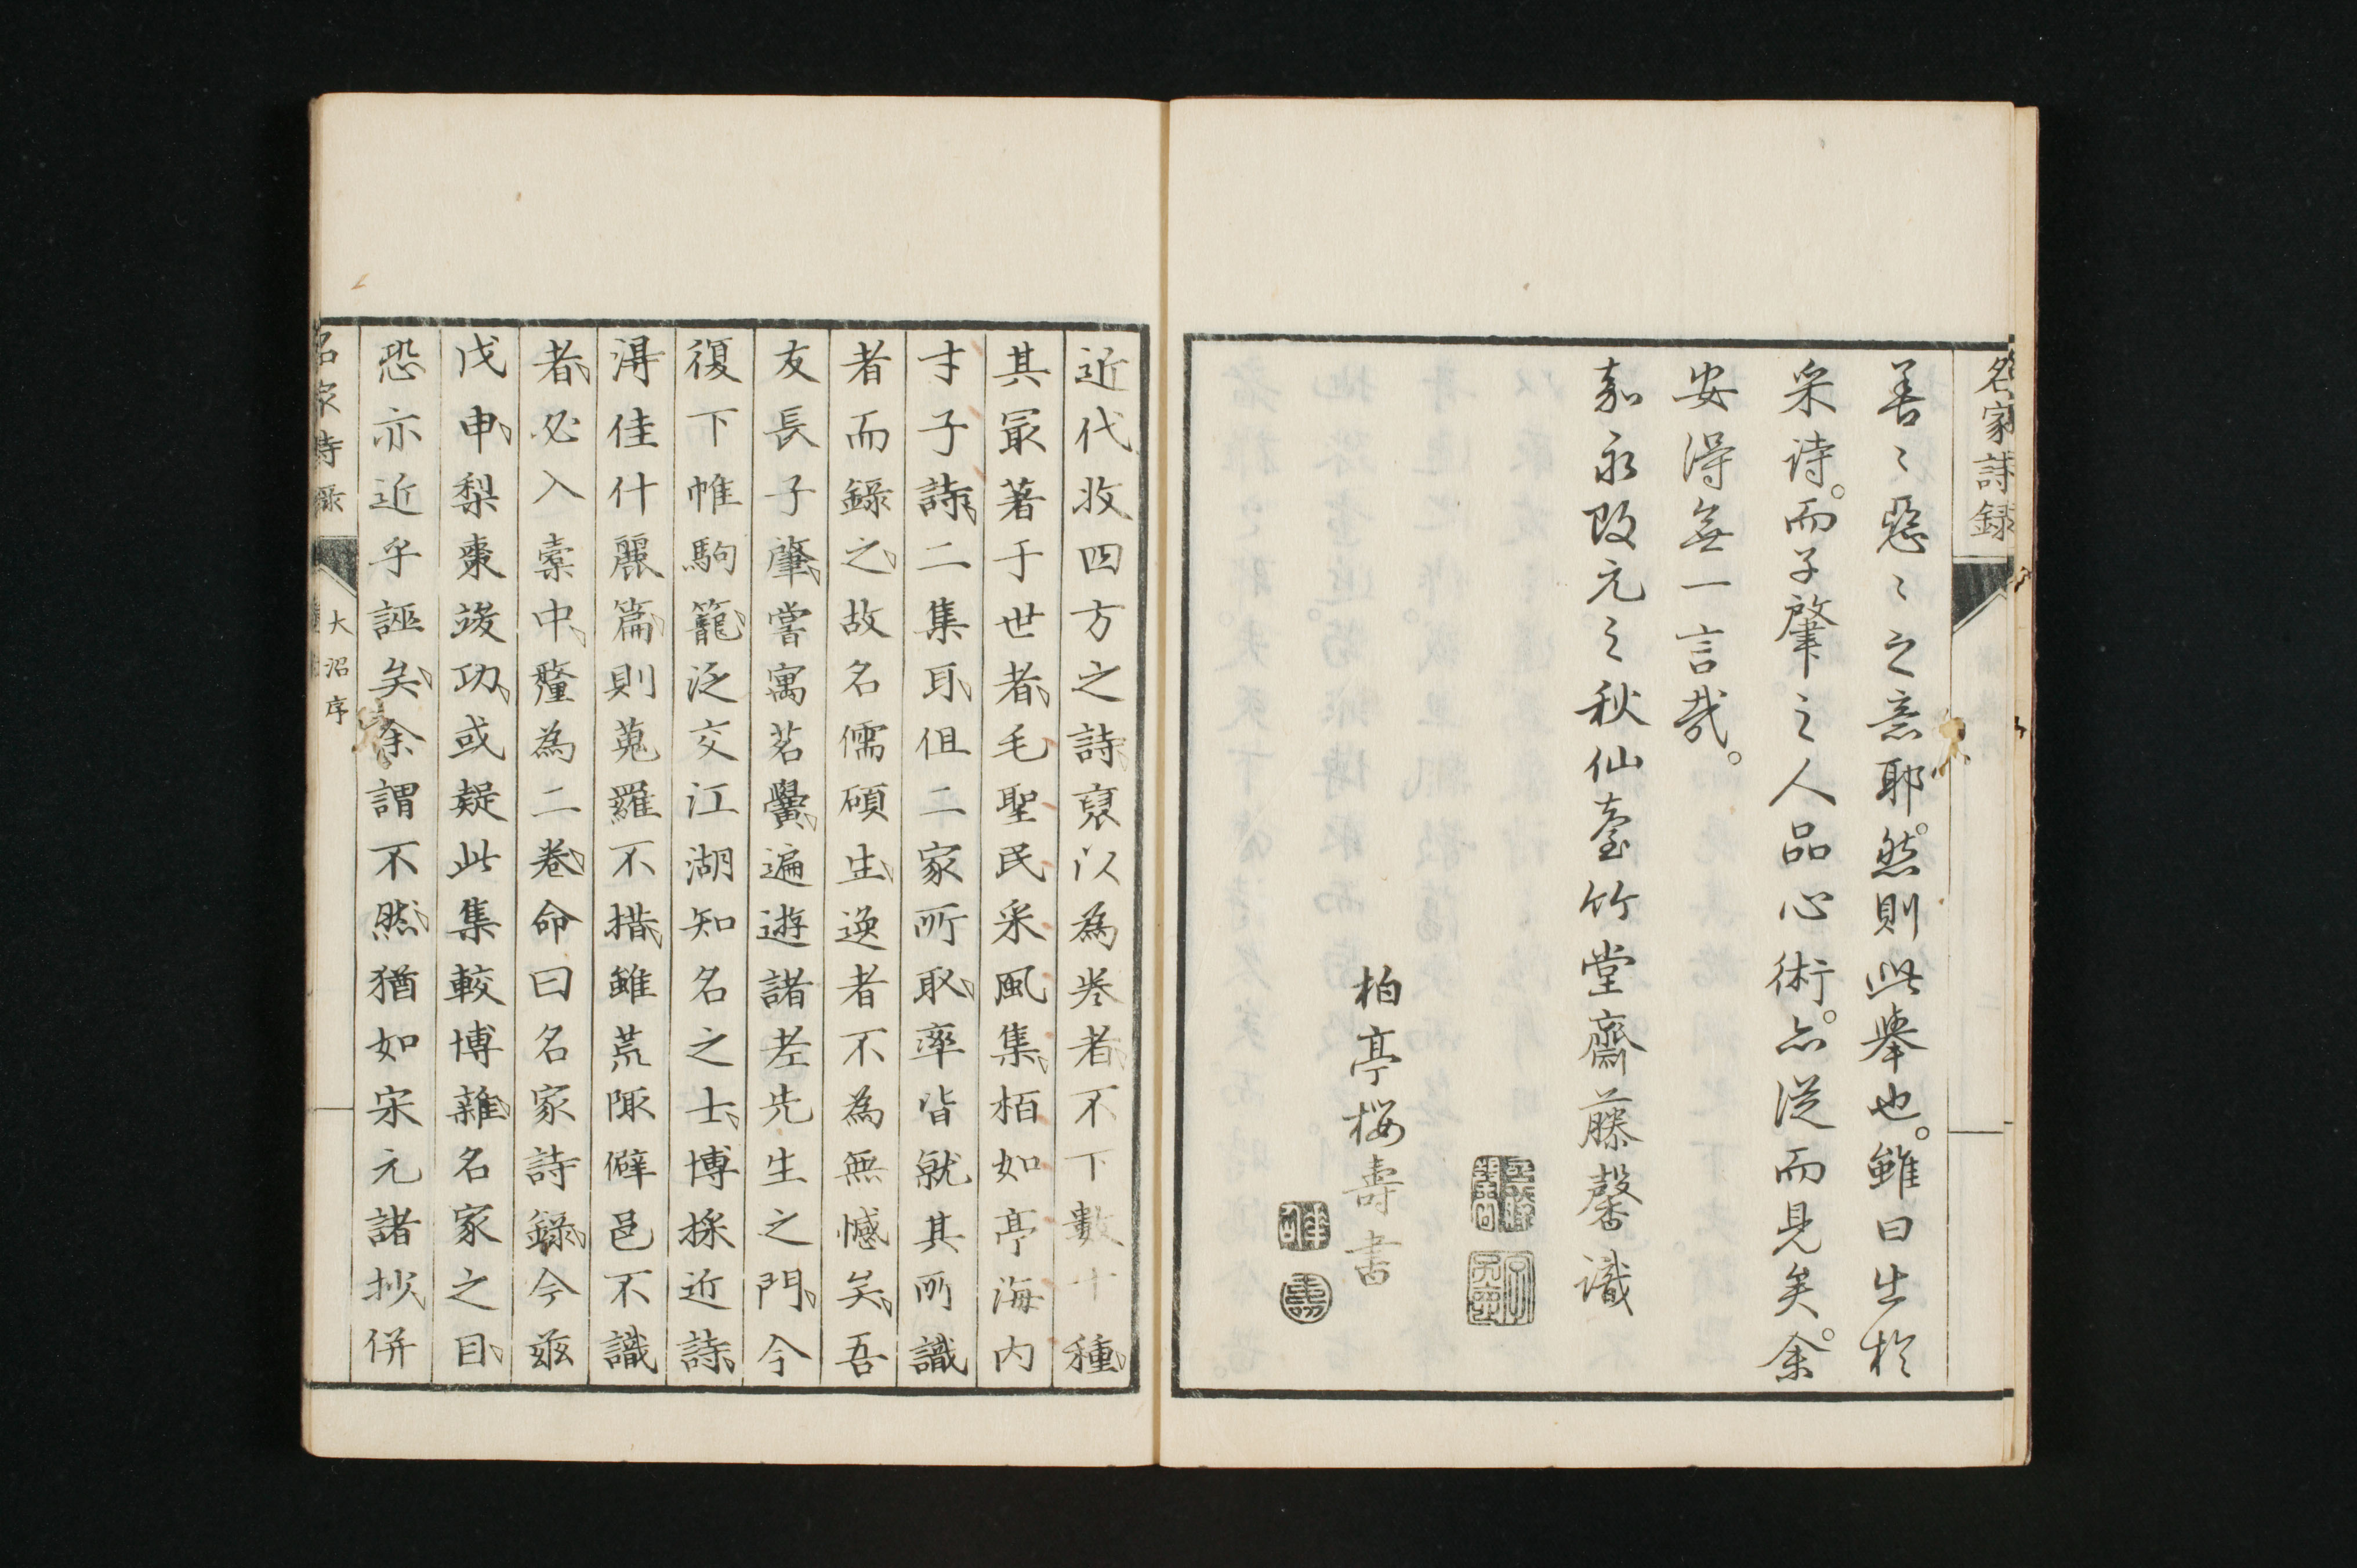 名家詩録
善〻惡〻之意耶。然則此舉也。雖曰出於
采诗。而子肇之人品心術。亦從而見矣。余
安得無一言哉。
嘉永改元之秋仙臺竹堂齋藤馨識
柏亭桜壽書
近代收四方之詩裒以為卷者、不下數十種、
其冣著于世者、毛聖民采風集、栢如亭海内
才子詩、二集耳、但二家所取、率皆就其所識
者而錄之、故名儒碩生、逸者不為無憾矣、吾
友長子肇、嘗寓茗黌、遍遊諸老先生之門、今
復下帷駒籠、泛交江湖知名之士、博採近詩、
淂佳什麗篇、則蒐羅不措、雖荒陬僻邑不識
者、必入槖中、釐為二卷、命曰名家詩録、今茲
戊申、梨棗竣功、或疑此集較博雜、名家之目、
恐亦近乎誣矣、余謂不然、猶如宋元諸抄、併
名家詩録
大沼序